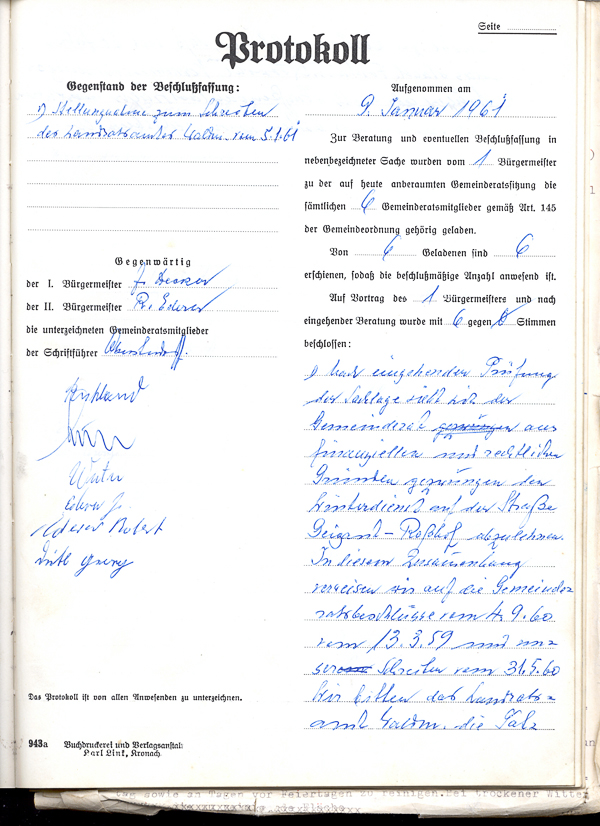 Seite
Protokoll
Gegenstand der Beschlußfassung:
1) Stellungnahme zum Schreiben
des Landratsamtes Waldm. vom 5.1.61
Gegenwärtig
der I. Bürgermeister J. Decker
der II. Bürgermeister R. Ederer
die unterzeichneten Gemeinderatsmitglieder
der Schriftführer
Winter
Ederer J.
Ederer Robert
Georg
Das Protokoll ist von allen Anwesenden zu unterzeichnen.
943a Buchdruckerei und Verlagsanstalt
Carl Link, Kronach.
Aufgenommen am
9. Januar 1961
Zur Beratung und eventuellen Beschlußfassung in
nebenbezeichneter Sache wurden vom 1 Bürgermeister
zu der auf heute anberaumten Gemeinderatssitzung die
sämtlichen 6 Gemeinderatsmitglieder gemäß Art. 145
der Gemeindeordnung gehörig geladen.
Von 6 Geladenen sind 6
erschienen, sodaß die beschlußmäßige Anzahl anwesend ist.
Auf Vortrag des 1 Bürgermeisters und nach
eingehender Beratung wurde mit 6 gegen 0 Stimmen
beschlossen:
1) Nach eingehender Prüfung
der Sachlage sieht sich der
Gemeinderat gezwungen aus
finanziellen und rechtlichen
Gründen gezwungen den
Winterdienst auf der Straße
Geigant – Roßhof abzulehnen.
In diesem Zusammenhang
verweisen wir auf die Gemeinde-
ratsbeschlüsse vom 4.9.60
vom 13.3.59 und un-
ser Schreiben vom 31.5.60
Wir bitten das Landrats-
amt Waldm. die
tag sowie an Tagen vor Feiertagen zu reinigen. Bei trockener Witter